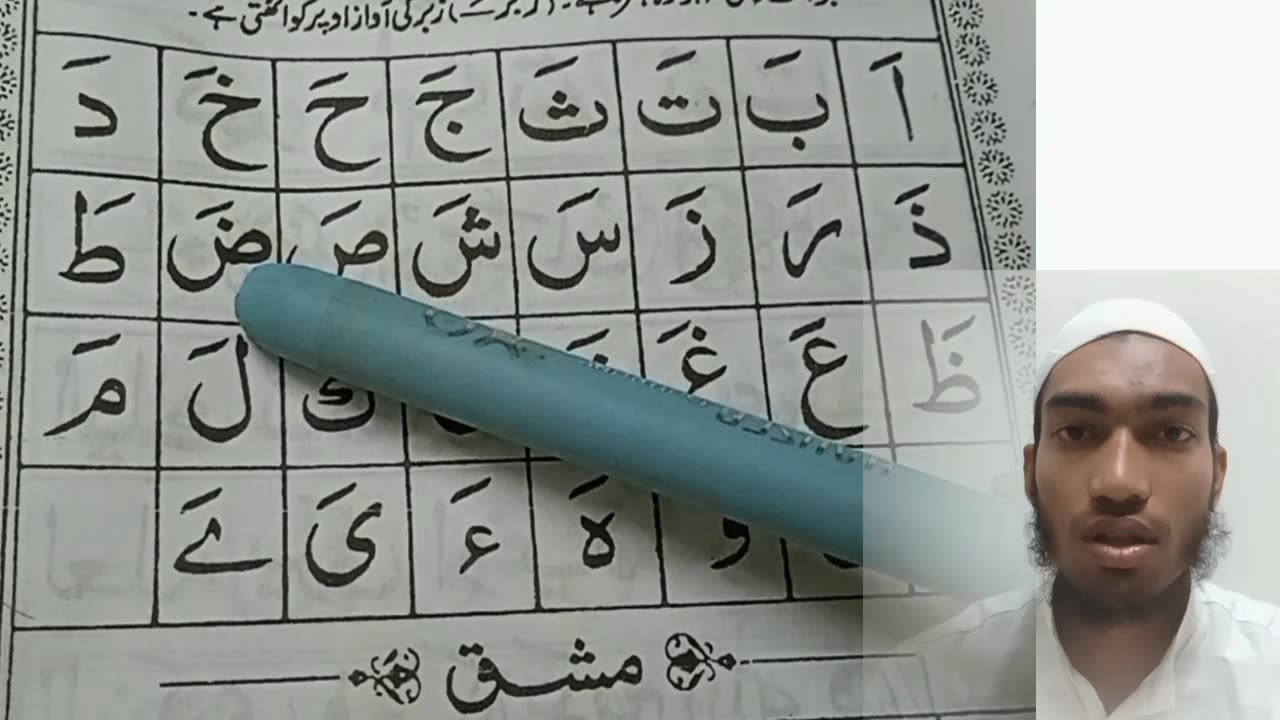 زبر کی آواز اوپر کو اٹھتی ہے۔
اَ بَ تَ ثَ جَ حَ خَ دَ
ذَ رَ زَ سَ شَ صَ ضَ طَ
ظَ عَ غَ كَ لَ مَ
وَ هَ ءَ یَ ےَ
مشق